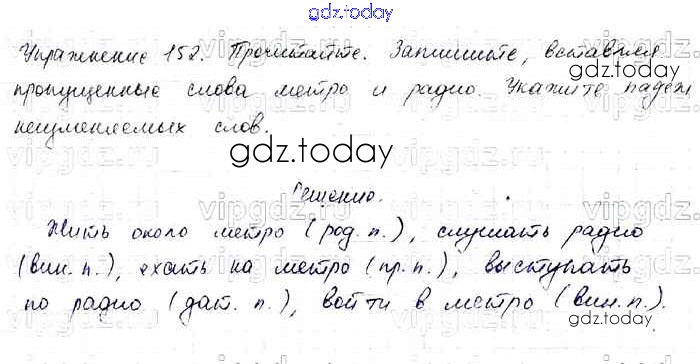 gdz.today
Упражнение 152. Прочитайте. Запишите, вставляя
gdz.today
пропущенные слова метро и радио. Укажите падеж
неизменяемых слов.
gdz.today
vipgdz.ru
Решение.
Жить около метро (род. п.), слушать радио
(вин. п.), ехать на метро (пр. п.), выступать
по радио (дат. п.), войти в метро (вин. п.).
gdz.today